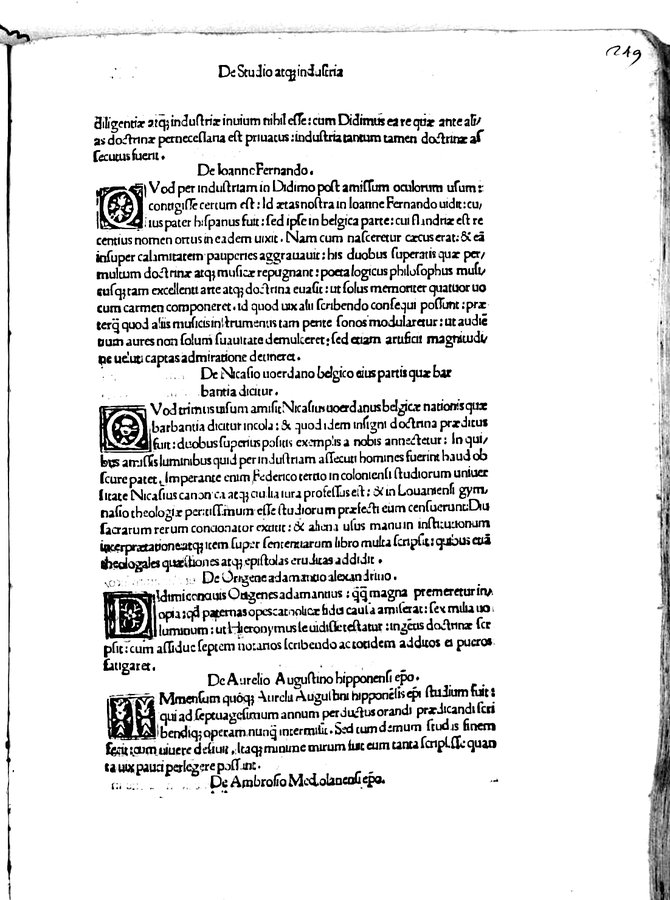 249
De Studio atq; industria
diligentiæ atq; industriæ inuium nihil esse: cum Didimus ea re quæ ante ali/
as doctrinæ pernecessaria est priuatus: industria tantum tamen doctrinæ as
secutus fuerit.
De Ioanne Fernando.
QVod per industriam in Didimo post amissum oculorum usum:
contigisse certum est: Id ætas nostra in Ioanne Fernando uidit: cu/
ius pater hispanus fuit: sed ipse in belgica parte: cui flandriæ est re
centius nomen ortus in eadem uixit. Nam cum nasceretur cæcus erat: & eã
insuper calamitatem pauperies aggrauauit: his duobus superatis quæ per/
multum doctrinæ atq; musicæ repugnant: poeta logicus philosophus musi/
cusq; tam excellenti arte atq; doctrina euasit: ut solus memoriter quatuor uo
cum carmen componeret. id quod uix alii scribendo consequi possunt: præ
terq̃ quod aliis musicis instrumentis tam perite sonos modularetur: ut audiẽ
tium aures non solum suauitate demulceret: sed etiam artificii magnitudi/
ne ueluti captas admiratione detineret.
De Nicasio uoerdano belgico eius partis quæ bar
bantia dicitur.
QVod trimus uisum amisit Nicasius uoerdanus belgicæ nationis quæ
barbantia dicitur incola: & quod idem insigni doctrina præditus
fuit: duobus superius positis exemplis a nobis annectetur: In qui/
bus amissis luminibus quid per industriam assecuti homines fuerint haud ob
scure patet. Imperante enim Federico tertio in coloniensi studiorum uniuer
sitate Nicasius canonica atq; ciuilia iura professus est: & in Louaniensi gym/
nasio theologiæ peritissimum esse studiorum præfecti eum censuerunt: Diu
sacrarum rerum concionator extitit: & aliena usus manu in institutionum
interpretatione atq; item super sententiarum libro multa scripsit: quibus etiã
theologales quæstiones atq; epistolas eruditas addidit.
De Origene adamantio alexandrino.
DIdimi coniuis Origenes adamantius: q̃q̃ magna premeretur in/
opia: qd paternas opes catholicæ fidei causa amiserat: sex milia uo
luminum: ut Hieronymus se uidisse testatur: ingẽtis doctrinæ scr
psit: cum assidue septem notarios scribendo ac totidem additos ei pueros
fatigaret.
De Aurelio Augustino hipponensi epõ.
IMmensum quoq; Aurelii Augustini hipponẽsis epi studium fuit:
qui ad septuagesimum annum perductus orandi prædicandi scri
bendiq; operam nunq̃ intermisit. Sed tum demum studiis finem
fecit: cum uiuere desiuit. Itaq; minime mirum fuit eum tanta scripsisse quan
ta uix pauci perlegere possunt.
De Ambrosio Mediolanensi epõ.